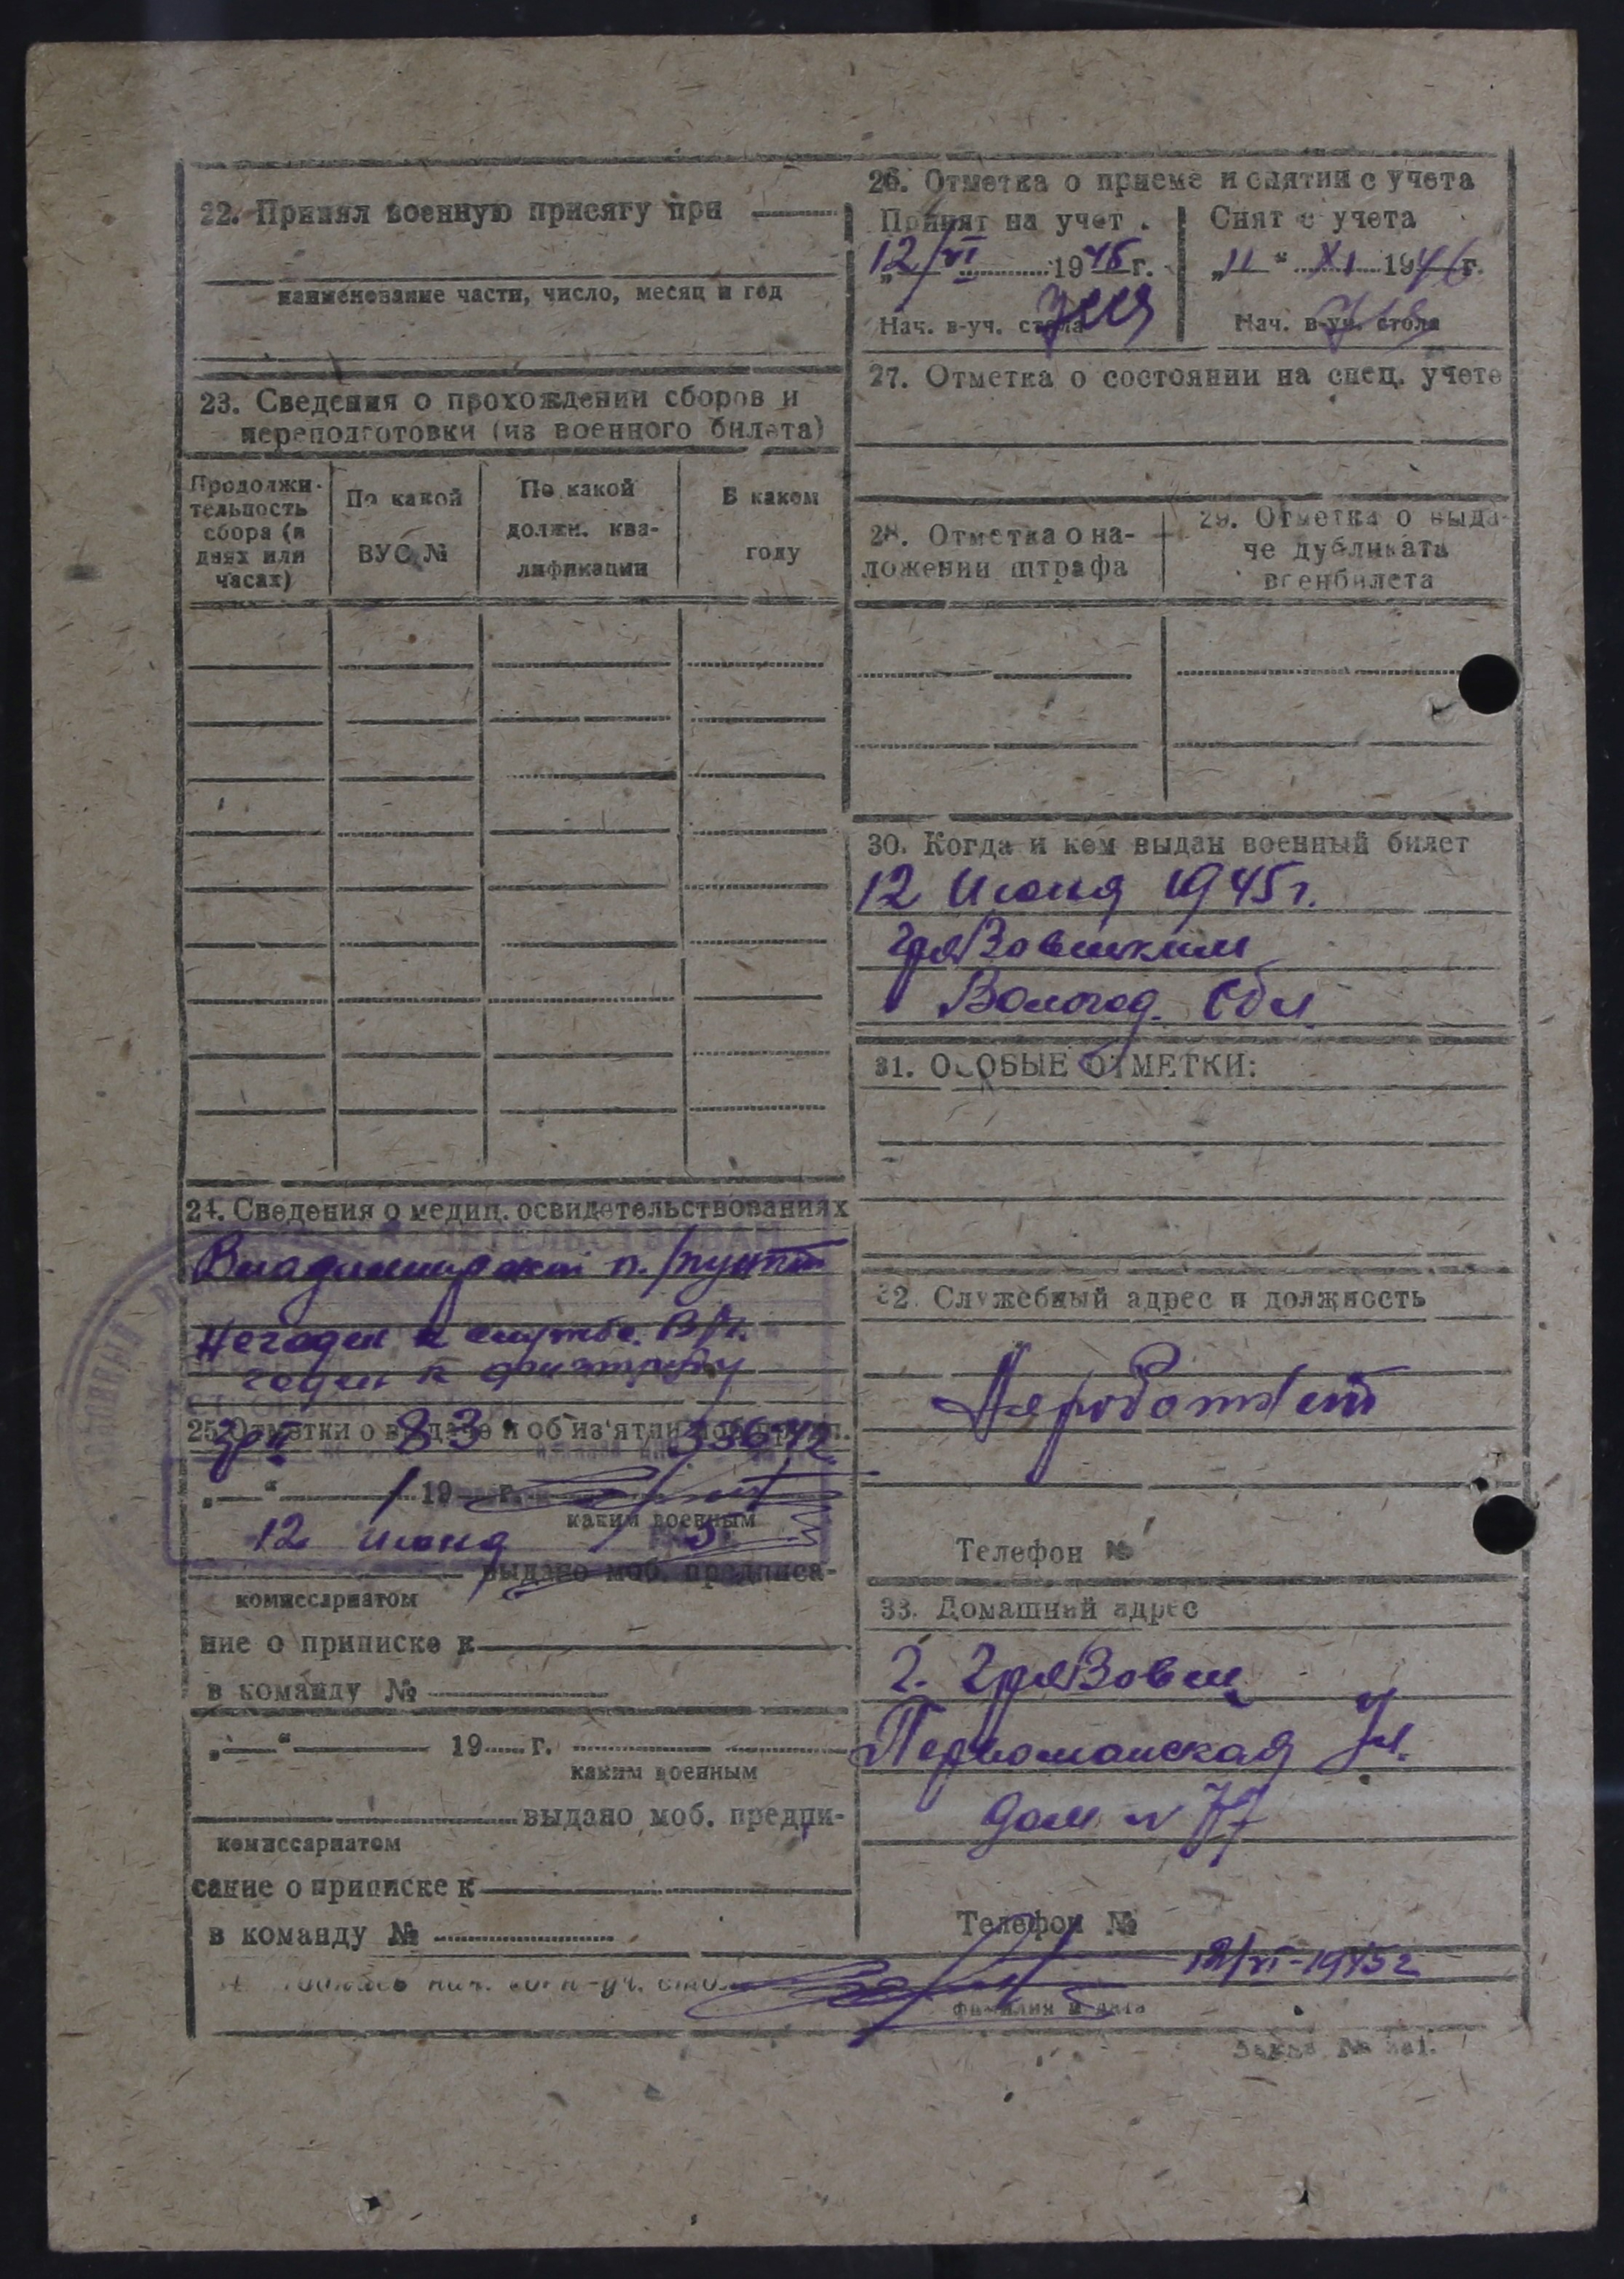 22. Принял военную присягу при
наименование части, число, месяц и год
23. Сведения о прохождении сборов и
переподготовки (из военного билета)
Продолжи-
тельность
сбора (в
днях или
часах)
По какой
ВУС №
По какой
должн. ква-
лификации
В каком
году
24. Сведения о медиц. освидетельствованиях
Владимирский п./пункт
Негоден к службе В/
годен к физтруду
25. Отметки о выдаче и об из'ятии моб.
гр II 83 336/42
„ “ 19 г.
каким военным
12 июня
выдано моб. предписа-
комиссариатом
ние о приписке к
в команду №
„ “ 19 г.
каким военным
выдано моб. предпи-
комиссариатом
сание о приписке к
в команду №
26. Отметка о приеме и снятии с учета
Принят на учет
12/VI 1945 г.
Нач. в-уч. стола
Снят с учета
„11“ XI 1946 г.
Нач. в-уч. стола
27. Отметка о состоянии на спец. учете
28. Отметка о на-
ложении штрафа
29. Отметка о выда-
че дубликата
военбилета
30. Когда и кем выдан военный билет
12 Июня 1945 г.
Грязовецким
Вологод. Обл.
31. ОСОБЫЕ ОТМЕТКИ:
32. Служебный адрес и должность
Неработает
Телефон №
33. Домашний адрес
г. Грязовец
Первомайская Ул.
дом № 77
Телефон №
12/VI-1945 г
нач. воен-уч. стола
фамилия и дата
Заказ №